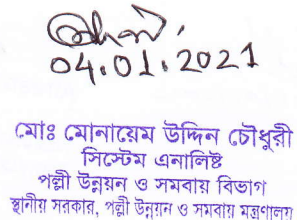 04.01.2021
মোঃ মোনায়েম উদ্দিন চৌধুরী
সিস্টেম এনালিষ্ট
পল্লী উন্নয়ন ও সমবায় বিভাগ
স্থানীয় সরকার, পল্লী উন্নয়ন ও সমবায় মন্ত্রণালয়